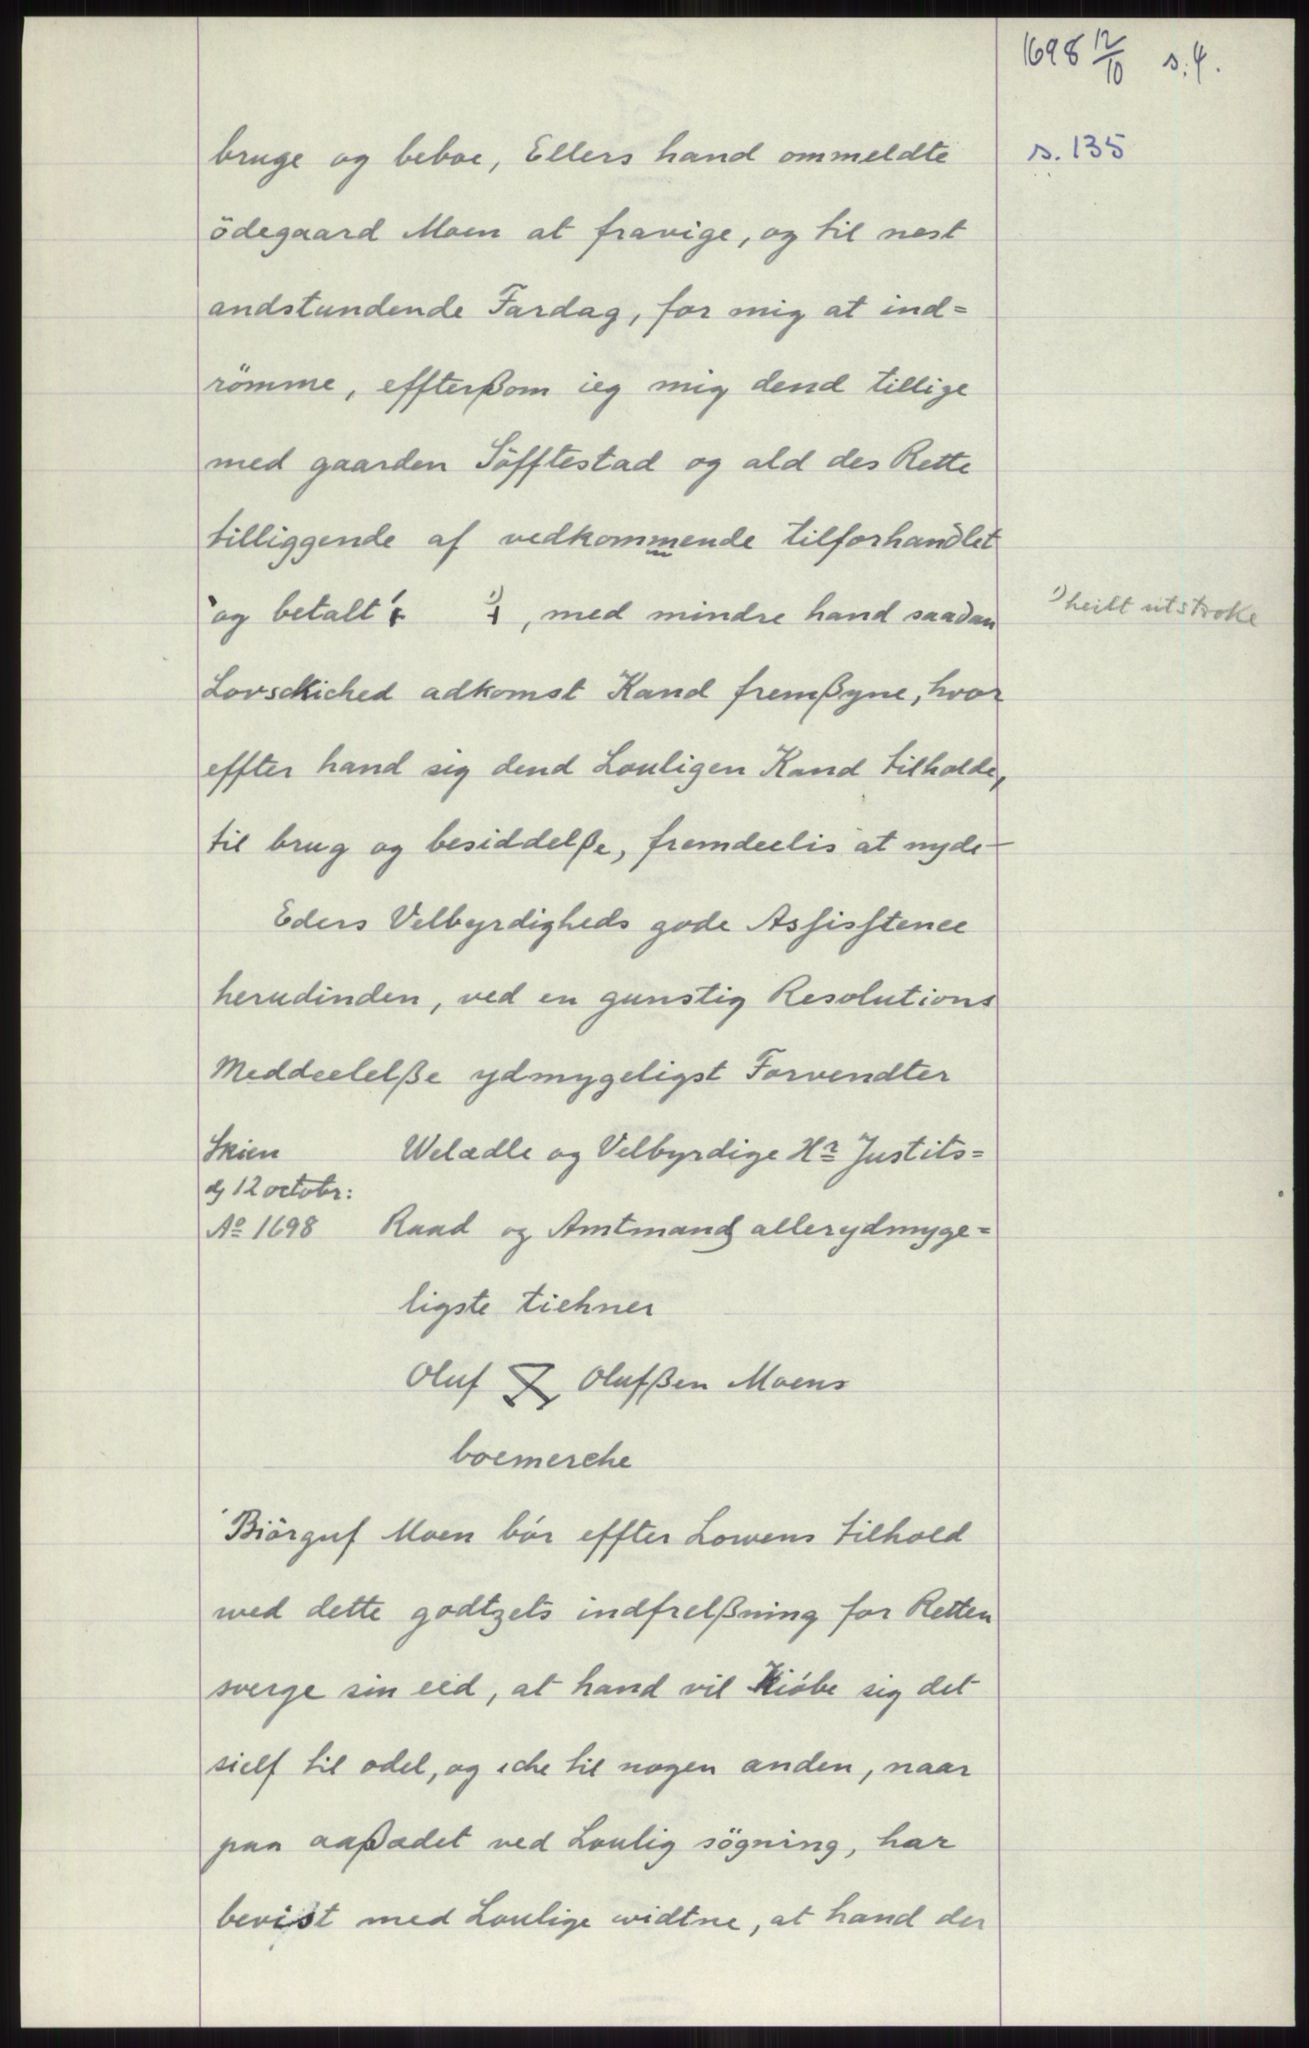 1698 12/10 s. 4.
s. 135
bruge og beboe, Ellers hand ommeldte
ödegaard Moen at fravige, og til nest
andstundende Fardag, for mig at ind=
römme, effterßom ieg mig dend tillige
med gaarden Söfftestad og ald des Rette
tilliggende af vedkommende tilforhandlet
og betalt ¹), med mindre hand saadan
¹) heilt utstroke
Lovsckiched adkomst Kand fremßyne, hvor
effter hand sig dend Louligen Kand tilholde,
til brug og besiddelße, fremdeelis at nyde
Eders Velbyrdigheds gode Assistence
herudinden, ved en gunstig Resolutions
Meddeelelße ydmygeligst Forvendter
Skien Welædle og Velbyrdige Hr Justits=
dj 12 octobr:
Ao 1698 Raad og Amtmands allerydmyge=
ligste tiehner
Oluf Olufßen Moens
boemerche
Biörguf Moen bör effter Lowens tilhold
wed dette godtzets indfrelßning for Retten
sverge sin eed, at hand vil Kiöbe sig det
sielf til odel, og iche til nogen anden, naar
paa aaßædet ved Loulig sögning, har
bevist med Loulige widtne, at hand der